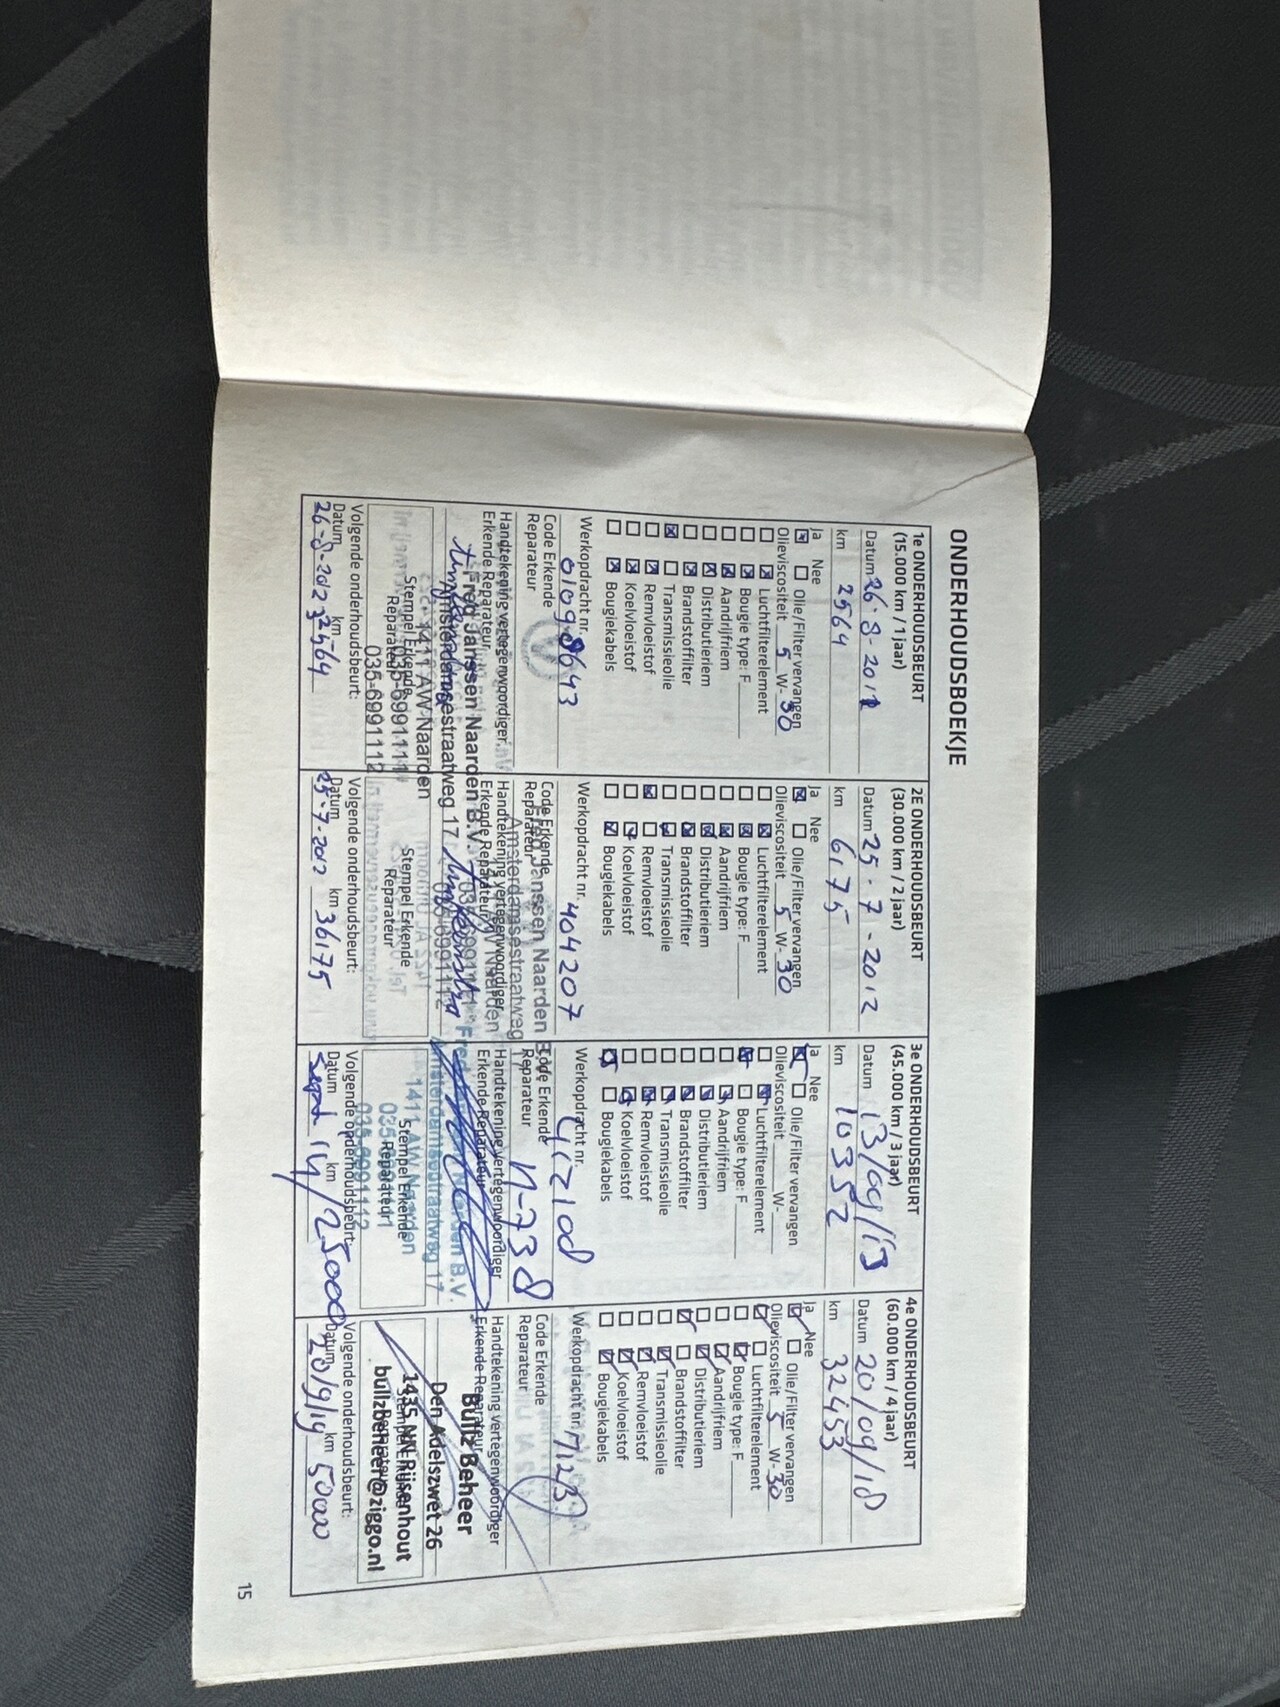 ONDERHOUDSBOEKJE
1e ONDERHOUDSBEURT
(15.000 km / 1 jaar)
Datum 26-8-2011
km 2564
Ja Nee
Olie/Filter vervangen
Olieviscositeit 5 W-30
Luchtfilterelement
Bougie type: F
Aandrijfriem
Distributieriem
Brandstoffilter
Transmissieolie
Remvloeistof
Koelvloeistof
Bougiekabels
Werkopdracht nr.
01098643
Code Erkende
Reparateur
Handtekening vertegenwoordiger
Erkende Reparateur
Fred Janssen Naarden B.V.
Amsterdamsestraatweg 17
1411 AW Naarden
035-6991111
035-6991112
Stempel Erkende
Reparateur
Volgende onderhoudsbeurt:
Datum km
26-8-2012 32564
2E ONDERHOUDSBEURT
(30.000 km / 2 jaar)
Datum 25-7-2012
km 6175
Ja Nee
Olie/Filter vervangen
Olieviscositeit 5 W-30
Luchtfilterelement
Bougie type: F
Aandrijfriem
Distributieriem
Brandstoffilter
Transmissieolie
Remvloeistof
Koelvloeistof
Bougiekabels
Werkopdracht nr.
404207
Code Erkende
Reparateur
Fred Janssen Naarden B.V.
Amsterdamsestraatweg 17
Handtekening vertegenwoordiger
Erkende Reparateur
Stempel Erkende
Reparateur
Volgende onderhoudsbeurt:
Datum km
25-7-2012 36175
3e ONDERHOUDSBEURT
(45.000 km / 3 jaar)
Datum 13/09/13
km 10352
Ja Nee
Olie/Filter vervangen
Olieviscositeit W-
Luchtfilterelement
Bougie type: F
Aandrijfriem
Distributieriem
Brandstoffilter
Transmissieolie
Remvloeistof
Koelvloeistof
Bougiekabels
Werkopdracht nr.
Code Erkende
Reparateur
Handtekening vertegenwoordiger
Erkende Reparateur
Fred Janssen Naarden B.V.
Amsterdamsestraatweg 17
1411 AW Naarden
035-6991111
035-6991112
Stempel Erkende
Reparateur
Volgende onderhoudsbeurt:
Datum km
sept 14 / 25000
4e ONDERHOUDSBEURT
(60.000 km / 4 jaar)
Datum 20/09/18
km 32453
Ja Nee
Olie/Filter vervangen
Olieviscositeit 5 W-30
Luchtfilterelement
Bougie type: F
Aandrijfriem
Distributieriem
Brandstoffilter
Transmissieolie
Remvloeistof
Koelvloeistof
Bougiekabels
Werkopdracht nr.
Code Erkende
Reparateur
Handtekening vertegenwoordiger
Erkende Reparateur
Bullz Beheer
Den Adelszwet 26
1435 NN Rijsenhout
bullzbeheer@ziggo.nl
Stempel Erkende
Reparateur
Volgende onderhoudsbeurt:
Datum km
20/9/19 50000
15